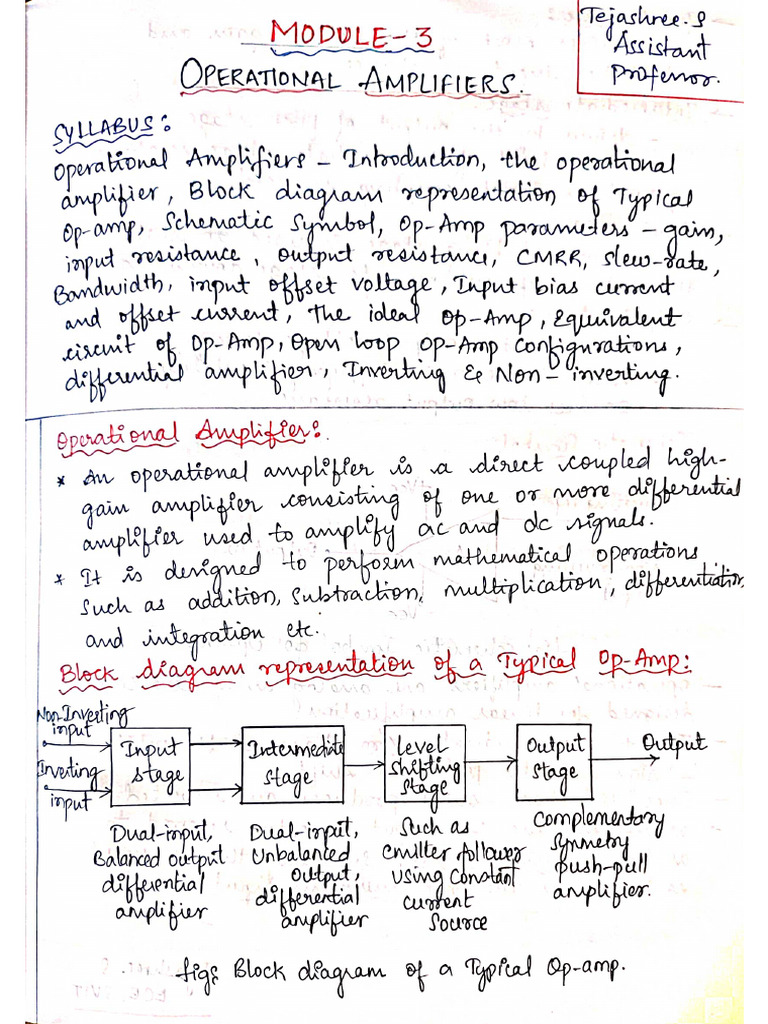 MODULE-3
Tejashree.S
Assistant
Professor.
OPERATIONAL AMPLIFIERS.
SYLLABUS:
Operational Amplifiers - Introduction, the operational
amplifier, Block diagram representation of Typical
Op-amp, Schematic Symbol, Op-Amp parameters - gain,
input resistance, output resistance, CMRR, slew-rate,
Bandwidth, input offset voltage, Input bias current
and offset current, The ideal Op-Amp, Equivalent
circuit of Op-Amp, Open loop Op-Amp configurations,
differential amplifier, Inverting & Non-inverting.
Operational Amplifier:
* An operational amplifier is a direct coupled high-
gain amplifier consisting of one or more differential
amplifier used to amplify ac and dc signals.
* It is designed to perform mathematical operations
such as addition, subtraction, multiplication, differentiation
and integration etc.
Block diagram representation of a Typical Op-Amp:
Non-Inverting
input
Inverting
input
Input
stage
Intermediate
stage
Level
shifting
stage
Output
stage
Output
Dual-input,
Balanced output
differential
amplifier
Dual-input,
Unbalanced
output,
differential
amplifier
Such as
emitter follower
using constant
current
source
Complementary
symmetry
push-pull
amplifier.
fig: Block diagram of a Typical Op-amp.